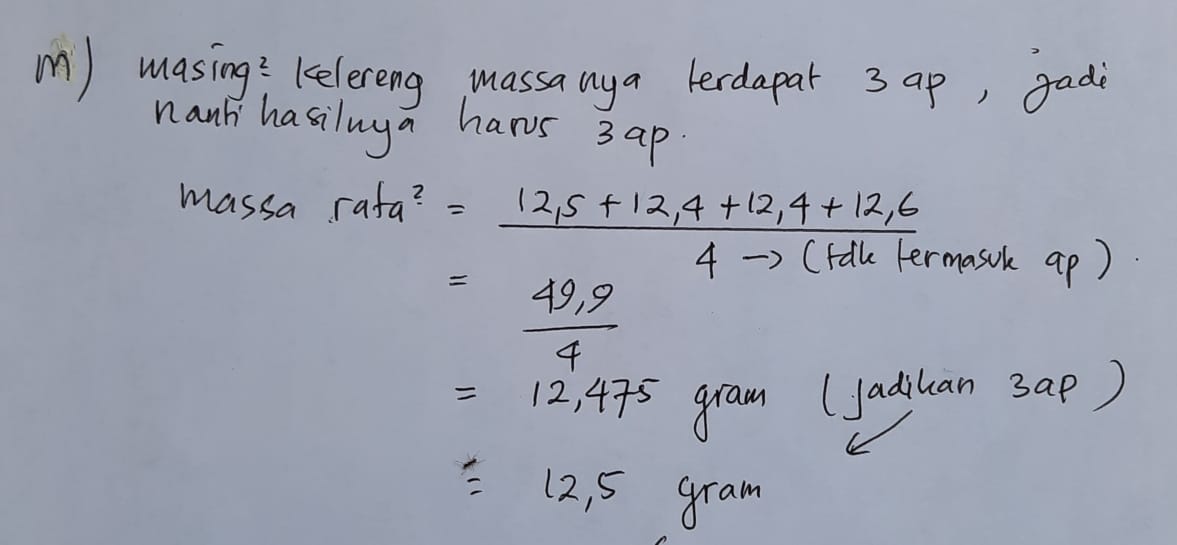 m) masing² kelereng massanya terdapat 3 ap, jadi
nanti hasilnya harus 3 ap.
massa rata² = 12,5 + 12,4 + 12,4 + 12,6
4 -> (tdk termasuk ap).
= 49,9
4
= 12,475 gram (jadikan 3ap)
= 12,5 gram